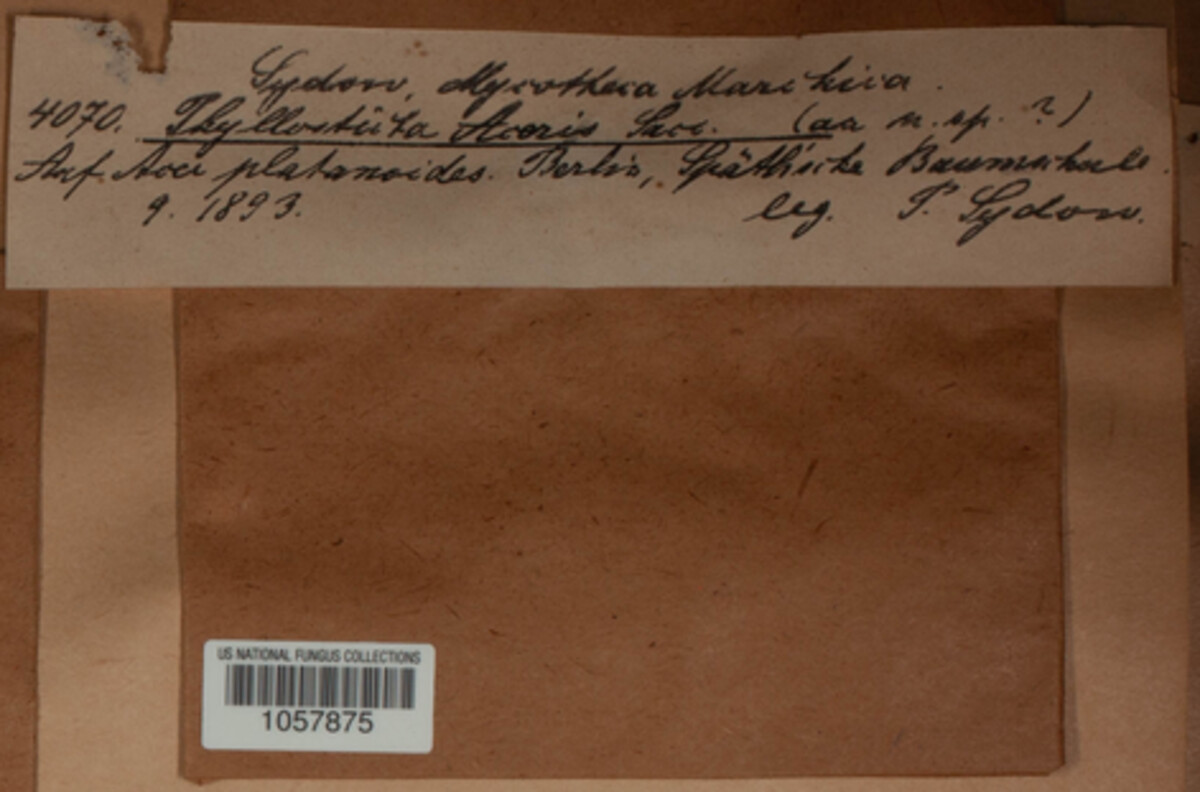 Sydow, Mycotheca Marchica.
4070. Phyllosticta Aceris Sacc. (an n. sp.?)
Auf Acer platanoides. Berlin, Späth'sche Baumschule.
9. 1893. leg. P. Sydow.
US NATIONAL FUNGUS COLLECTIONS
1057875